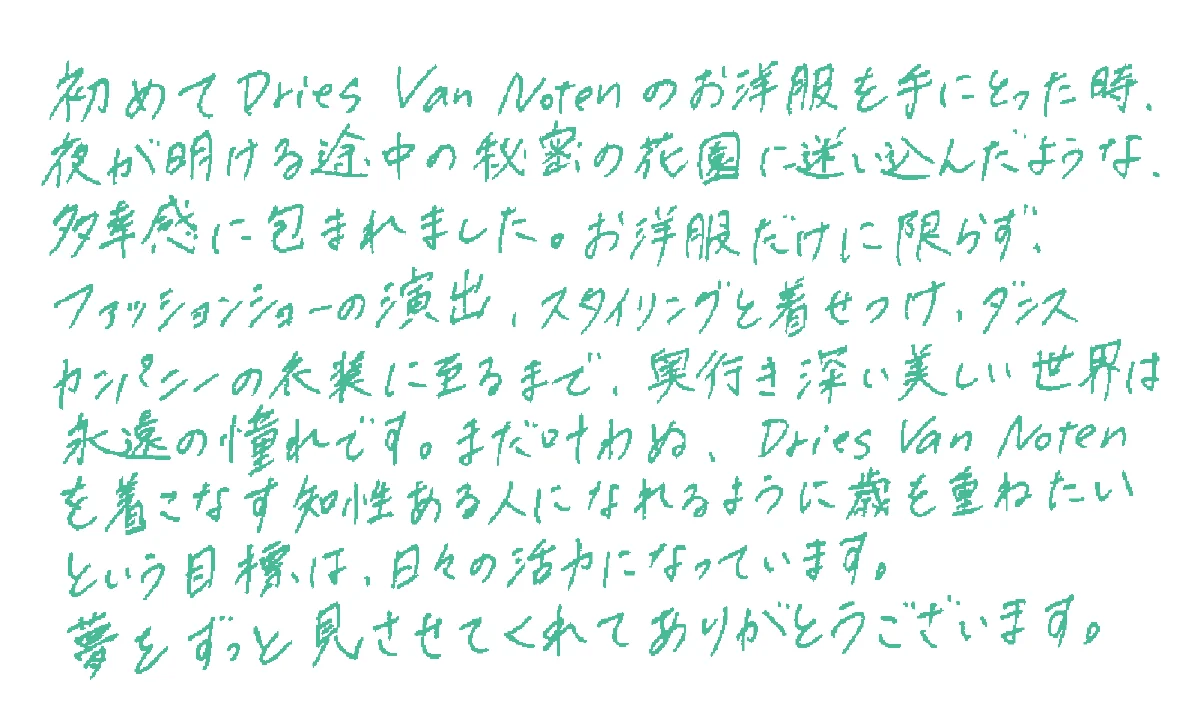 初めてDries Van Notenのお洋服を手にとった時、
夜が明ける途中の秘密の花園に迷い込んだような、
多幸感に包まれました。お洋服だけに限らず、
ファッションショーの演出、スタイリングと着せつけ、ダンス
カンパニーの衣装に至るまで、奥行き深い美しい世界は
永遠の憧れです。まだ叶わぬ、Dries Van Noten
を着こなす知性ある人になれるように歳を重ねたい
という目標は、日々の活力になっています。
夢をずっと見させてくれてありがとうございます。